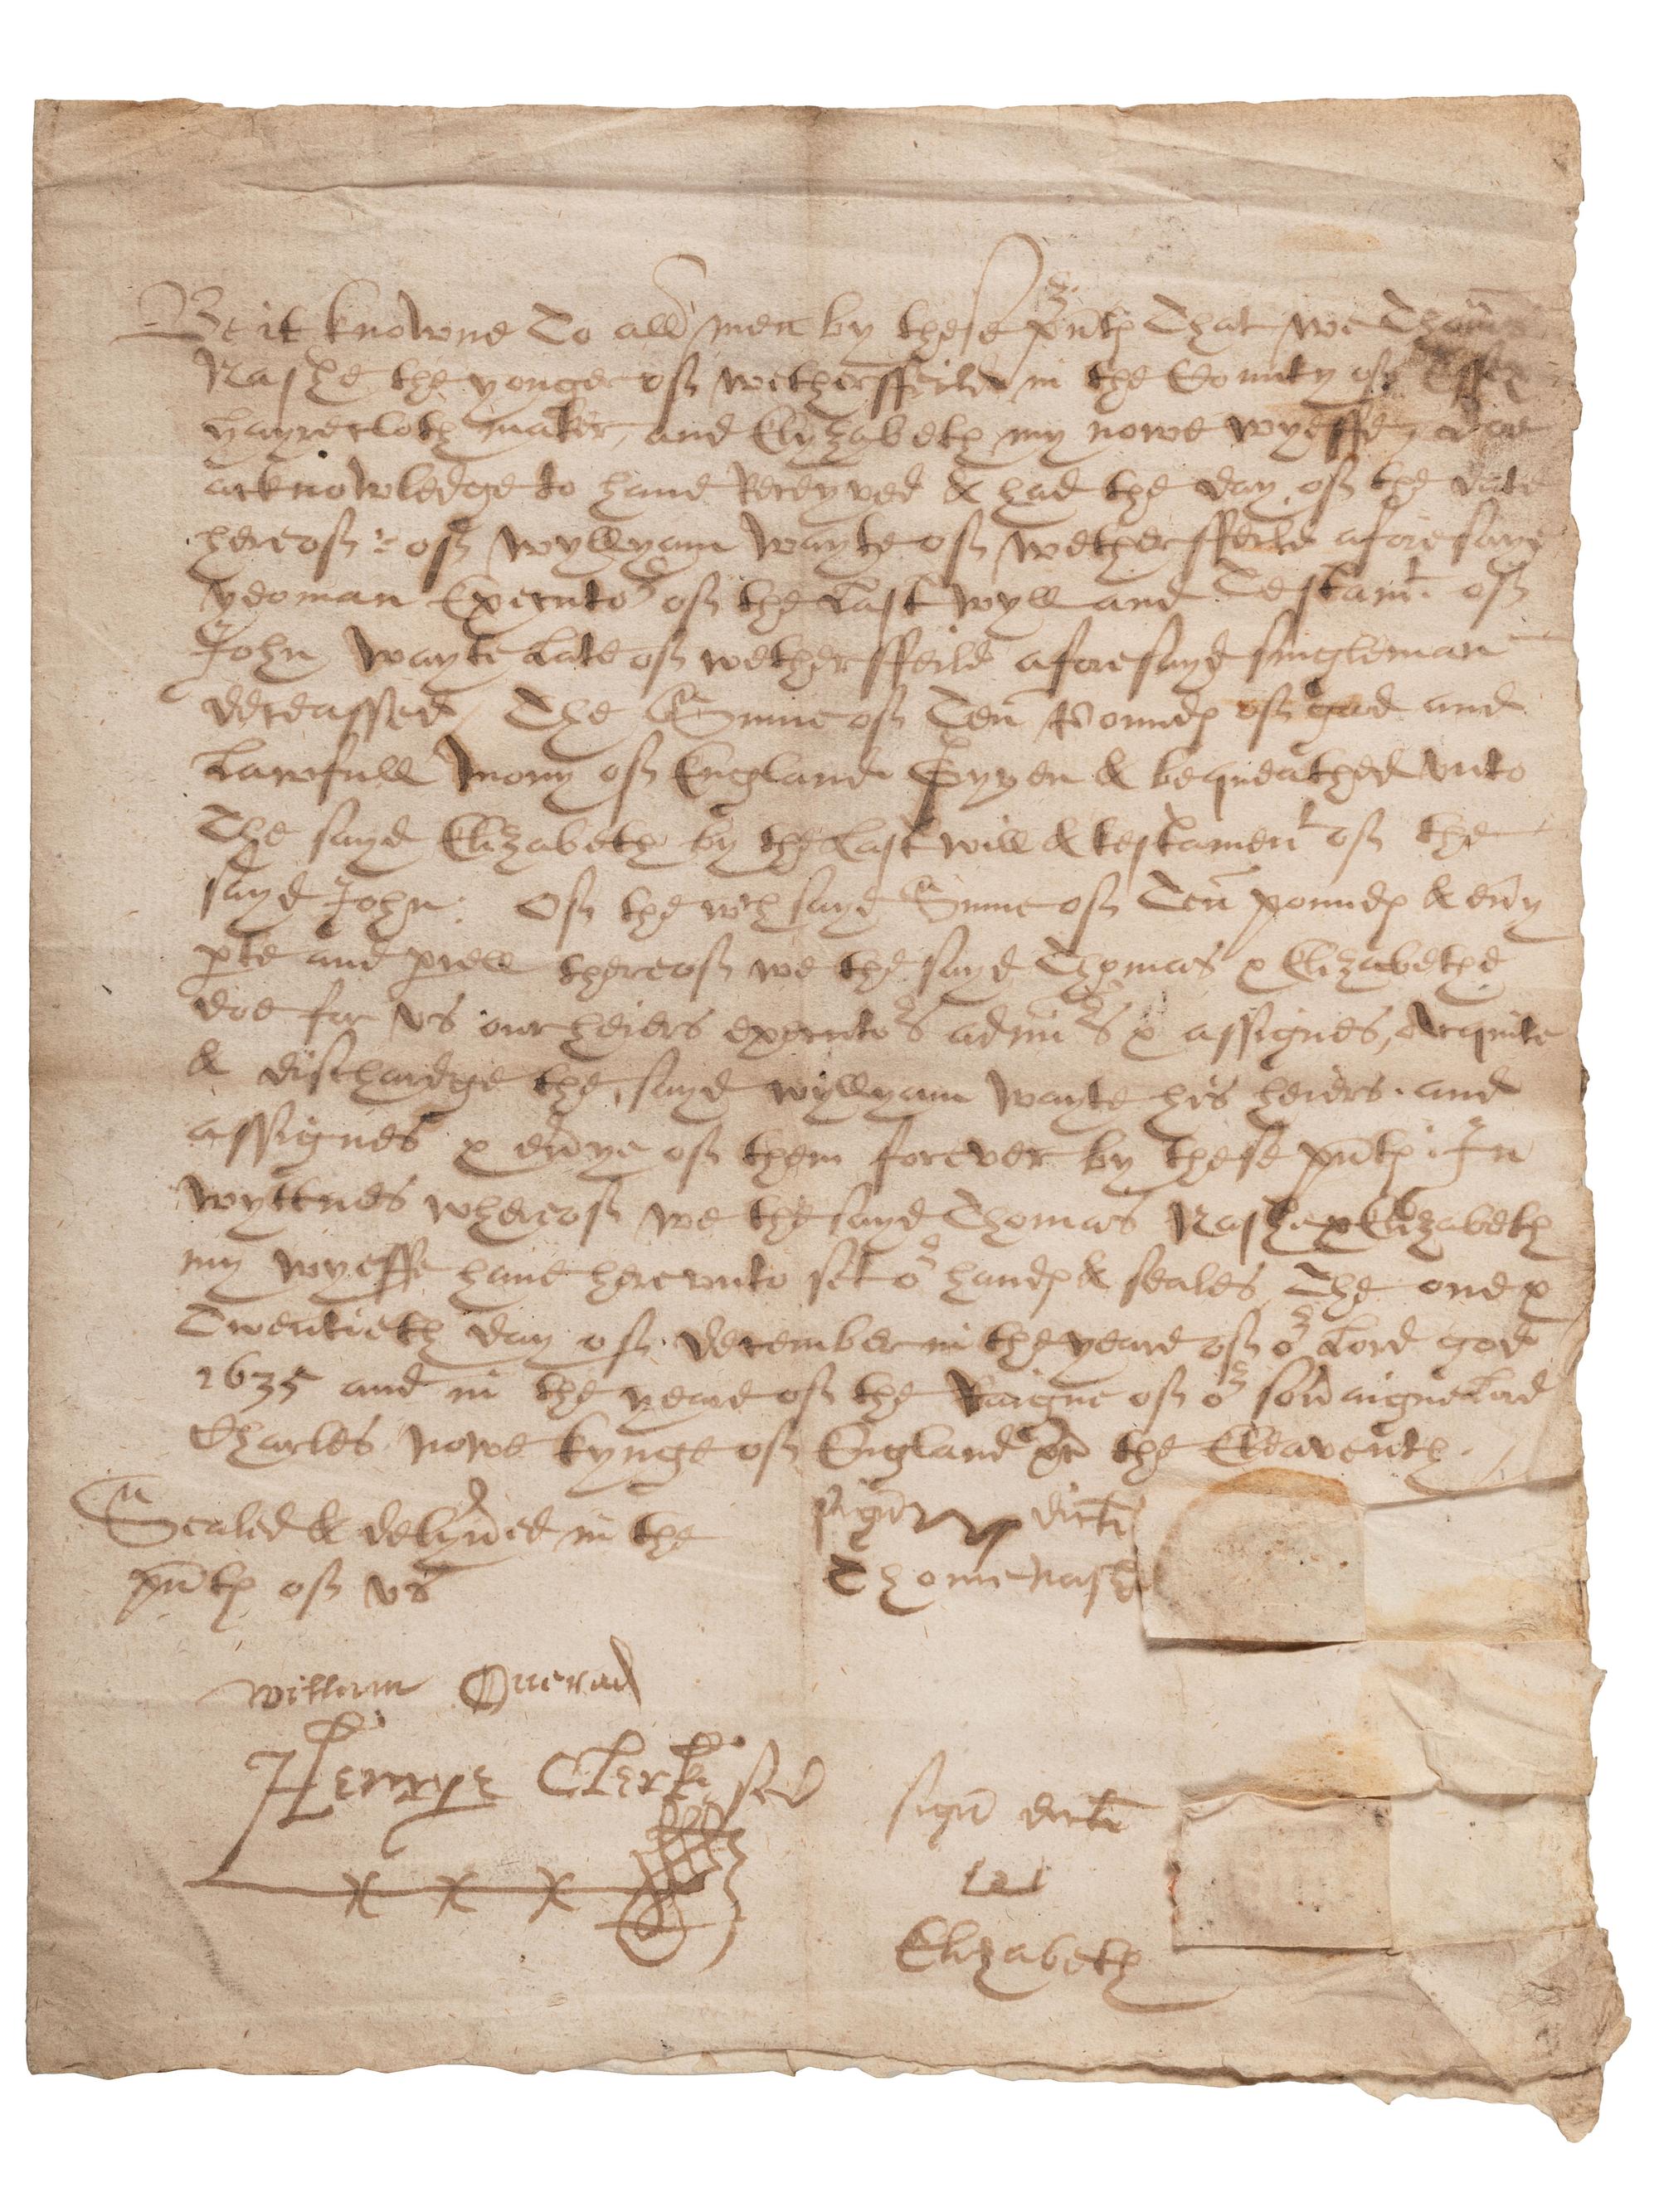 Be it knowne To all men by these pñtℯ That we Thoms
Nashe the yonger of wethersffeild in the County of Essex
hayrecloth maker, and Elyzabeth my nowe wyeffe doe
acknowledge to haue Receyved & had the day of the date
hereof : of Wyllyam Wayte of Wethersffeild aforesayd
yeoman Executor of the Last wyll and Testamt. of
John Wayte Late of wethersffeild aforesayd singleman
deceassed, The Sume of Ten Poundℯ of good and
Lawfull Mony of England Gyven & bequeathed vnto
The sayd Elizabeth by the Last will & testament of the
sayd John: Of the wch sayd Sume of Ten poundℯ & eũy
pte and pcell thereof we the sayd Thomas & Elizabethe
doe for vs our heiers executors admirs & assignes, Acquite
& dischardge the sayd Wyllyam Wayte his heiers and
assignes & eũye of them forever by these pñtℯ. In
wyttnes whereof we the sayd Thomas Nashe & Elizabeth
my wyeffe haue herevnto set or handℯ & seales The one &
Twentieth day of december in the yeare of or Lord god
1635 and in the yeare of the Raigne of or soũaigne Lord
Charles nowe kynge of England &c the Eleaventh.
Sealed & deliũed in the
pñtℯ of vs
signũ dicti
Thome Nashe
William
Henrye Clerke sen
signũ dicte
Elizabeth